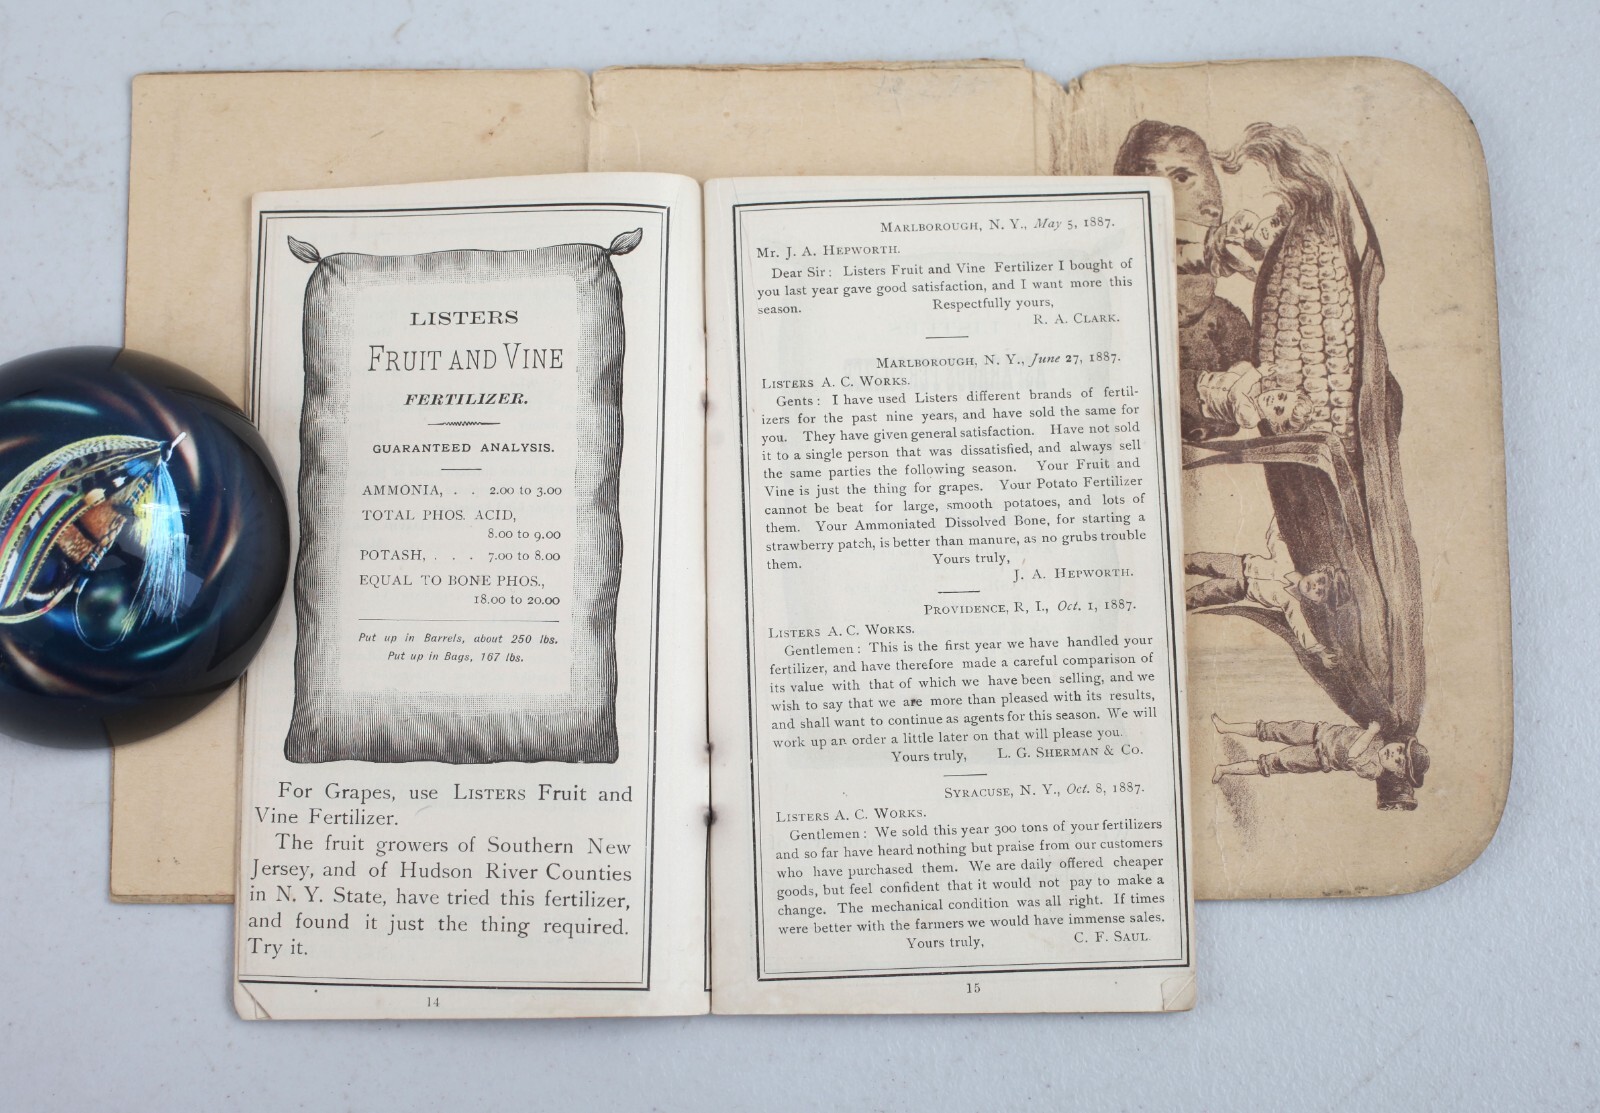 LISTERS
FRUIT AND VINE
FERTILIZER.
GUARANTEED ANALYSIS.
AMMONIA, . . 2.00 to 3.00
TOTAL PHOS. ACID,
8.00 to 9.00
POTASH, . . . 7.00 to 8.00
EQUAL TO BONE PHOS.,
18.00 to 20.00
Put up in Barrels, about 250 lbs.
Put up in Bags, 167 lbs.
For Grapes, use LISTERS Fruit and
Vine Fertilizer.
The fruit growers of Southern New
Jersey, and of Hudson River Counties
in N. Y. State, have tried this fertilizer,
and found it just the thing required.
Try it.
14
MARLBOROUGH, N. Y., May 5, 1887.
Mr. J. A. HEPWORTH.
Dear Sir: Listers Fruit and Vine Fertilizer I bought of
you last year gave good satisfaction, and I want more this
season. Respectfully yours,
R. A. CLARK.
MARLBOROUGH, N. Y., June 27, 1887.
LISTERS A. C. WORKS.
Gents: I have used Listers different brands of fertil-
izers for the past nine years, and have sold the same for
you. They have given general satisfaction. Have not sold
it to a single person that was dissatisfied, and always sell
the same parties the following season. Your Fruit and
Vine is just the thing for grapes. Your Potato Fertilizer
cannot be beat for large, smooth potatoes, and lots of
them. Your Ammoniated Dissolved Bone, for starting a
strawberry patch, is better than manure, as no grubs trouble
them. Yours truly,
J. A. HEPWORTH.
PROVIDENCE, R, I., Oct. 1, 1887.
LISTERS A. C. WORKS.
Gentlemen: This is the first year we have handled your
fertilizer, and have therefore made a careful comparison of
its value with that of which we have been selling, and we
wish to say that we are more than pleased with its results,
and shall want to continue as agents for this season. We will
work up an order a little later on that will please you.
Yours truly, L. G. SHERMAN & CO.
SYRACUSE, N. Y., Oct. 8, 1887.
LISTERS A. C. WORKS.
Gentlemen: We sold this year 300 tons of your fertilizers
and so far have heard nothing but praise from our customers
who have purchased them. We are daily offered cheaper
goods, but feel confident that it would not pay to make a
change. The mechanical condition was all right. If times
were better with the farmers we would have immense sales.
Yours truly, C. F. SAUL.
15